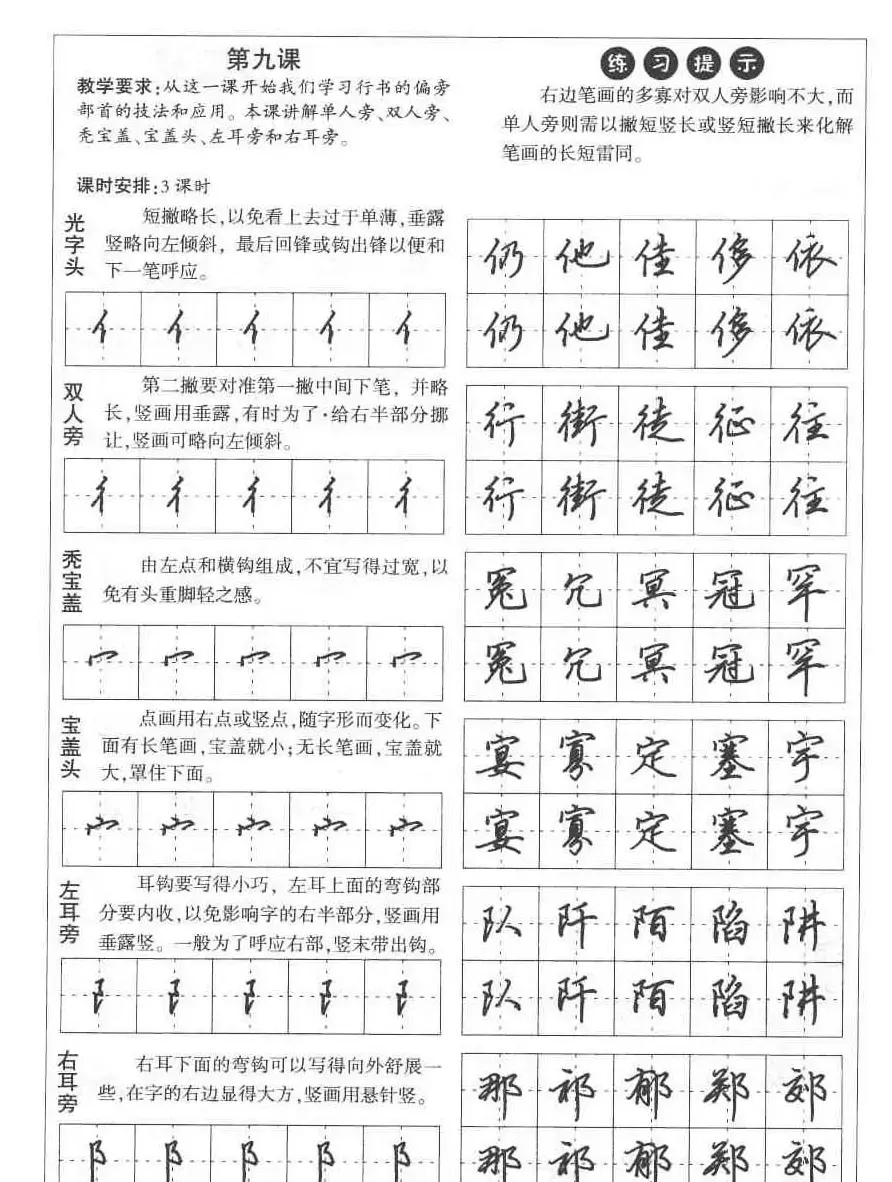 第九课
教学要求:从这一课开始我们学习行书的偏旁
部首的技法和应用。本课讲解单人旁、双人旁、
秃宝盖、宝盖头、左耳旁和右耳旁。
课时安排:3 课时
练习提示
右边笔画的多寡对双人旁影响不大,而
单人旁则需以撇短竖长或竖短撇长来化解
笔画的长短雷同。
光字头
短撇略长,以免看上去过于单薄,垂露
竖略向左倾斜，最后回锋或钩出锋以便和
下一笔呼应。
亻 亻 亻 亻 亻
仍 他 佳 侈 依
仍 他 佳 侈 依
双人旁
第二撇要对准第一撇中间下笔，并略
长,竖画用垂露,有时为了·给右半部分挪
让,竖画可略向左倾斜。
彳 彳 彳 彳 彳
行 街 徒 征 往
行 街 徒 征 往
秃宝盖
由左点和横钩组成,不宜写得过宽,以
免有头重脚轻之感。
冖 冖 冖 冖 冖
冤 冗 冥 冠 罕
冤 冗 冥 冠 罕
宝盖头
点画用右点或竖点,随字形而变化。下
面有长笔画,宝盖就小;无长笔画,宝盖就
大,罩住下面。
宀 宀 宀 宀 宀
宴 寡 定 塞 宇
宴 寡 定 塞 宇
左耳旁
耳钩要写得小巧，左耳上面的弯钩部
分要内收,以免影响字的右半部分,竖画用
垂露竖。一般为了呼应右部,竖末带出钩。
阝 阝 阝 阝 阝
队 阡 陌 陷 阱
队 阡 陌 陷 阱
右耳旁
右耳下面的弯钩可以写得向外舒展一
些,在字的右边显得大方,竖画用悬针竖。
阝 阝 阝 阝 阝
那 祁 郁 郑 郊
那 祁 郁 郑 郊